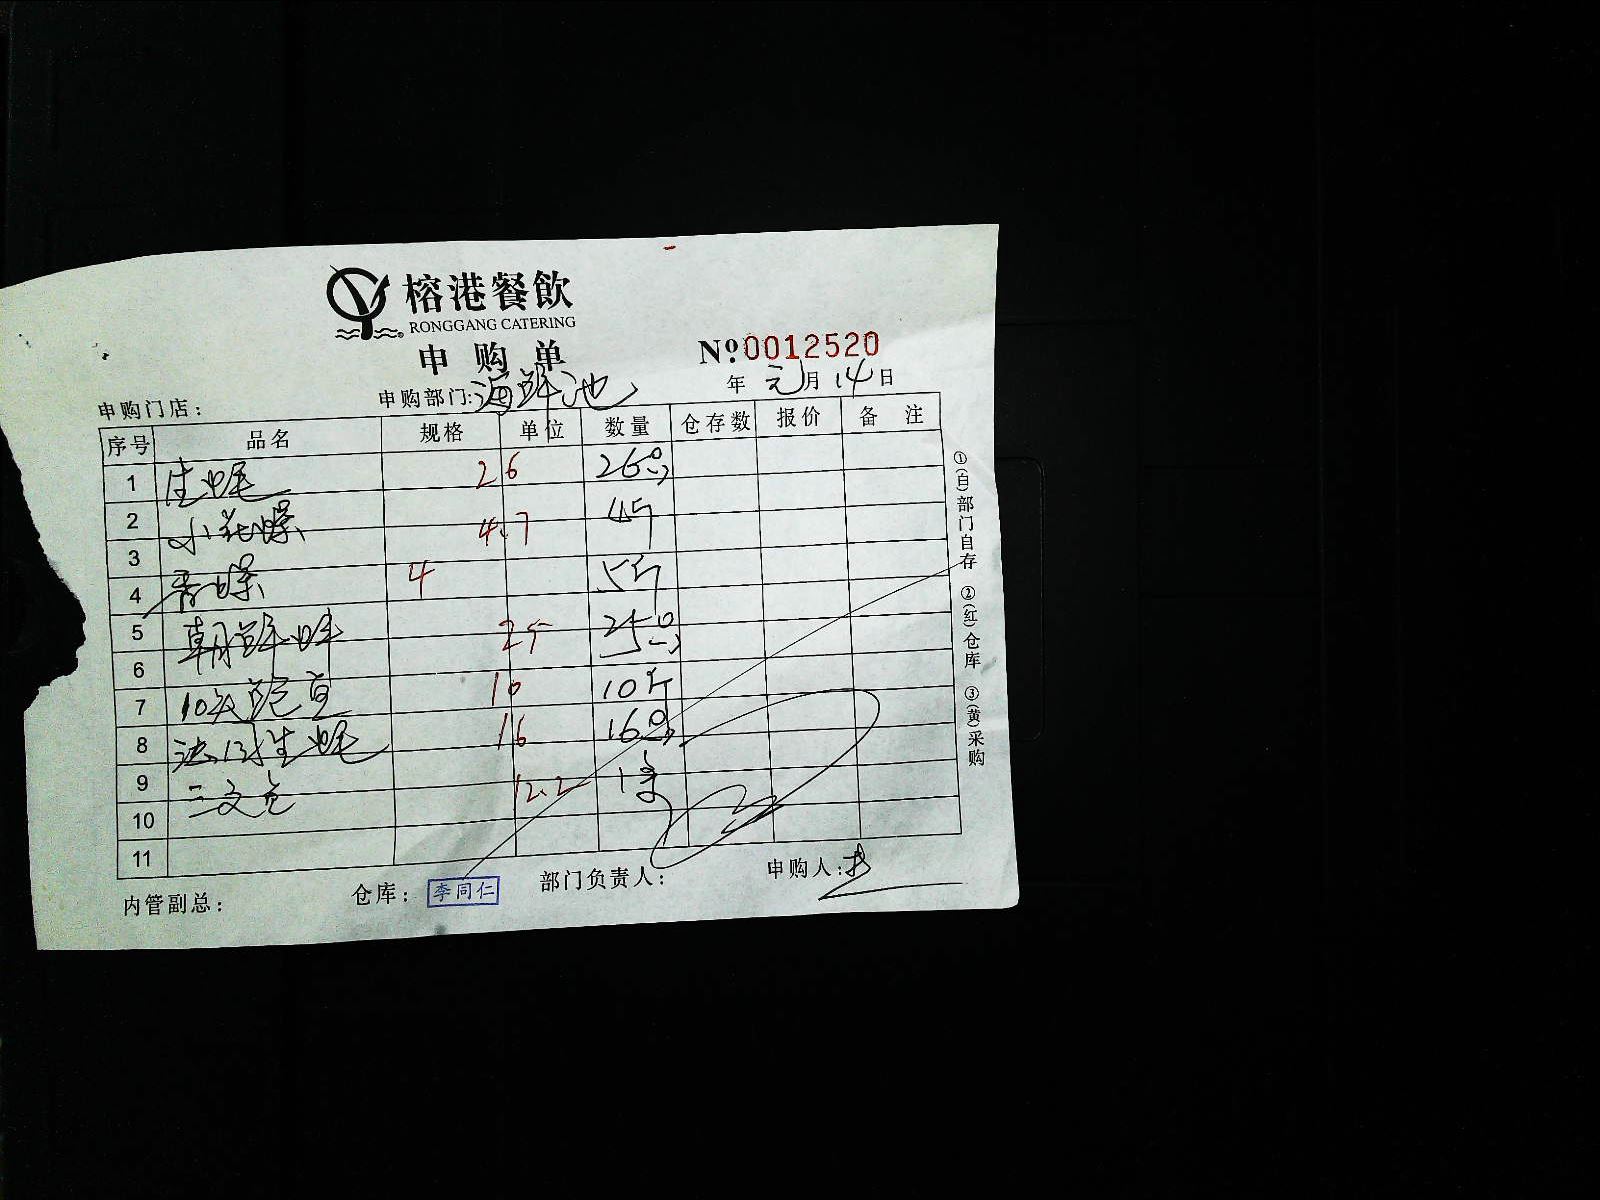 榕港餐飲
RONGGANG CATERING
申购单
№0012520
申购门店： 申购部门:海鲜池 年 元月 14日
序号 品名 规格 单位 数量 仓存数 报价 备注
1 生蚝 26 26只
2 小花螺 4.7 4斤
3
4 香螺 4 5斤
5 朝鲜蚌 25 25只
6
7 10头鲍鱼 10 10斤
8 法国生蚝 16 16只
9 三文鱼 12.2 1条
10
11
内管副总： 仓库： 李同仁 部门负责人： 申购人:
①(白)部门自存 ②(红)仓库 ③(黄)采购